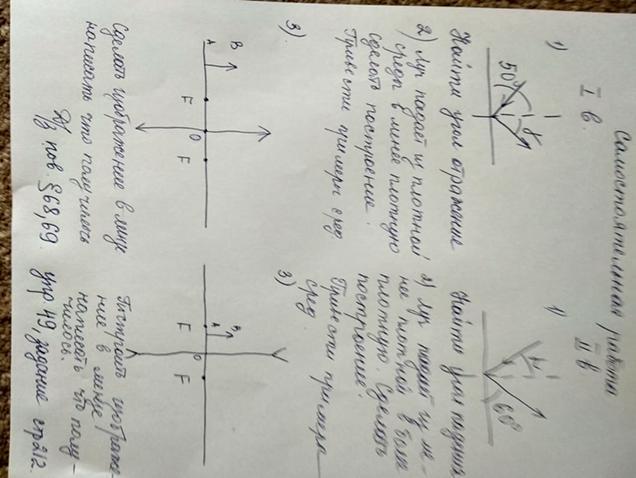 Самостоятельная работа
I в.
1)
50°
Найти угол отражения
2) Луч падает из плотной
среды в менее плотную
сделать построение.
Привести примеры сред
3).
B
A
F
O
F
Сделать изображение в линзе
написать что получилось
Д/з пов. §68,69 упр 49, задание стр 212
II в
1)
60°
Найти угол падения
2) Луч падает из ме-
нее плотной в более
плотную. Сделать
построение.
Привести примера
сред
3)
B
A
F
O
F
Построить изображе-
ние в линзе
написать что полу-
чилось.